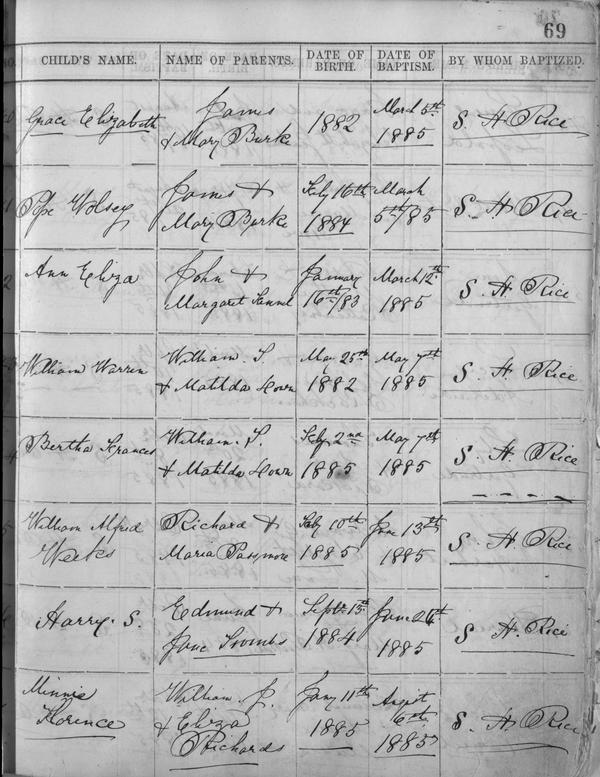 69
CHILD'S NAME. NAME OF PARENTS. DATE OF BIRTH. DATE OF BAPTISM. BY WHOM BAPTIZED.
Grace Elizabeth James & Mary Burke 1882 March 5th 1885 S. H. Rice
Pope Wolsey James & Mary Burke Feby 16th 1884 March 5th/85 S. H. Rice
Ann Eliza John & Margaret January 16th/83 March 12th 1885 S. H. Rice
William Warren William. S. & Matilda Down May 25th 1882 May 7th 1885 S. H. Rice
Bertha Frances William. S. & Matilda Down Feby 2nd 1885 May 7th 1885 S. H. Rice
William Alfred Weeks Richard & Maria Passmore Feby 10th 1885 June 13th 1885 S. H. Rice
Harry. S. Edmund & Jane Toombs Septbr 15th 1884 June 26th 1885 S. H. Rice
Minnie Florence William. J. & Eliza Richards Jany 11th 1885 August 16th 1885 S. H. Rice